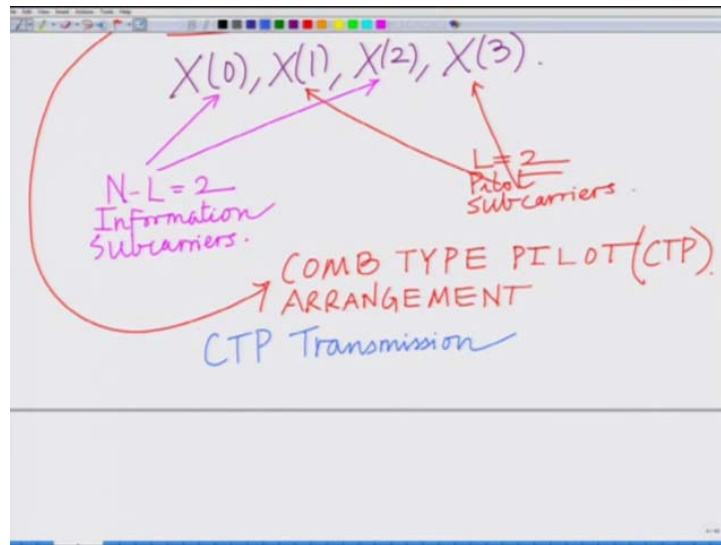 X(0), X(1), X(2), X(3).
N-L = 2
Information
Subcarriers.
L = 2
Pilot
Subcarriers.
COMB TYPE PILOT (CTP).
ARRANGEMENT
CTP Transmission